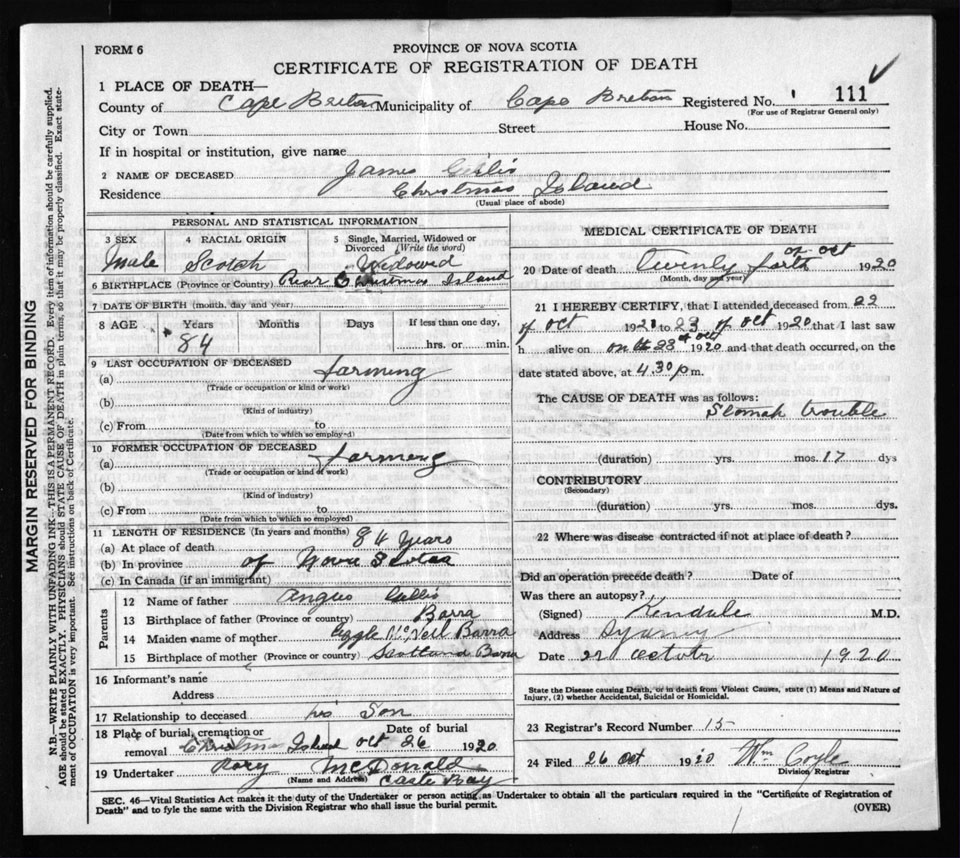 FORM 6
PROVINCE OF NOVA SCOTIA
CERTIFICATE OF REGISTRATION OF DEATH
1 PLACE OF DEATH—
County of Cape Breton Municipality of Cape Breton Registered No. 111
(For use of Registrar General only)
City or Town Street House No.
If in hospital or institution, give name
2 NAME OF DECEASED James Gillis
Residence Christmas Island
(Usual place of abode)
PERSONAL AND STATISTICAL INFORMATION
3 SEX 4 RACIAL ORIGIN 5 Single, Married, Widowed or Divorced (Write the word)
Male Scotch Widowed
6 BIRTHPLACE (Province or Country) Rear Christmas Island
7 DATE OF BIRTH (month, day and year)
8 AGE Years Months Days If less than one day,
84 hrs. or min.
9 LAST OCCUPATION OF DECEASED
(a) Farming
(Trade or occupation or kind or work)
(b)
(Kind of industry)
(c) From to
(Date from which to which so employed)
10 FORMER OCCUPATION OF DECEASED
(a) Farming
(Trade or occupation or kind of work)
(b)
(Kind of industry)
(c) From to
(Date from which to which so employed)
11 LENGTH OF RESIDENCE (In years and months)
(a) At place of death 84 years
(b) In province of Nova Scotia
(c) In Canada (if an immigrant)
Parents
12 Name of father Angus Gillis
13 Birthplace of father (Province or country) Barra
14 Maiden name of mother McNeil Barra
15 Birthplace of mother (Province or country) Scotland Barra
16 Informant's name
Address
17 Relationship to deceased his Son
18 Place of burial, cremation or removal Christmas Island Date of burial oct 26 1920
19 Undertaker Rory McDonald
(Name and Address) Castle Bay
MEDICAL CERTIFICATE OF DEATH
20 Date of death Twenty forth of oct 1920
(Month, day and year)
21 I HEREBY CERTIFY, that I attended deceased from 22
of oct 1920 to 23 of oct 1920 that I last saw
h alive on on the 23 of oct 1920 and that death occurred, on the
date stated above, at 4.30 p m.
The CAUSE OF DEATH was as follows:
Stomak trouble
(duration) yrs. mos. 17 dys
CONTRIBUTORY
(Secondary)
(duration) yrs. mos. dys.
22 Where was disease contracted if not at place of death?
Did an operation precede death? Date of
Was there an autopsy?
(Signed) Kendale M.D.
Address Sydney
Date 22 1920
State the Disease causing Death, or in death from Violent Causes, state (1) Means and Nature of
Injury, (2) whether Accidental, Suicidal or Homicidal.
23 Registrar's Record Number 15
24 Filed 26 Oct 1920 Wm Coyle
Division Registrar
SEC. 46—Vital Statistics Act makes it the duty of the Undertaker or person acting as Undertaker to obtain all the particulars required in the "Certificate of Registration of
Death" and to fyle the same with the Division Registrar who shall issue the burial permit.
(OVER)
MARGIN RESERVED FOR BINDING
N.B.—WRITE PLAINLY WITH UNFADING INK—THIS IS A PERMANENT RECORD. Every item of information should be carefully supplied.
AGE should be stated EXACTLY. PHYSICIANS should STATE CAUSE OF DEATH in plain terms, so that it may be properly classified. Exact state-
ment of OCCUPATION is very important. See instructions on back of Certificate.